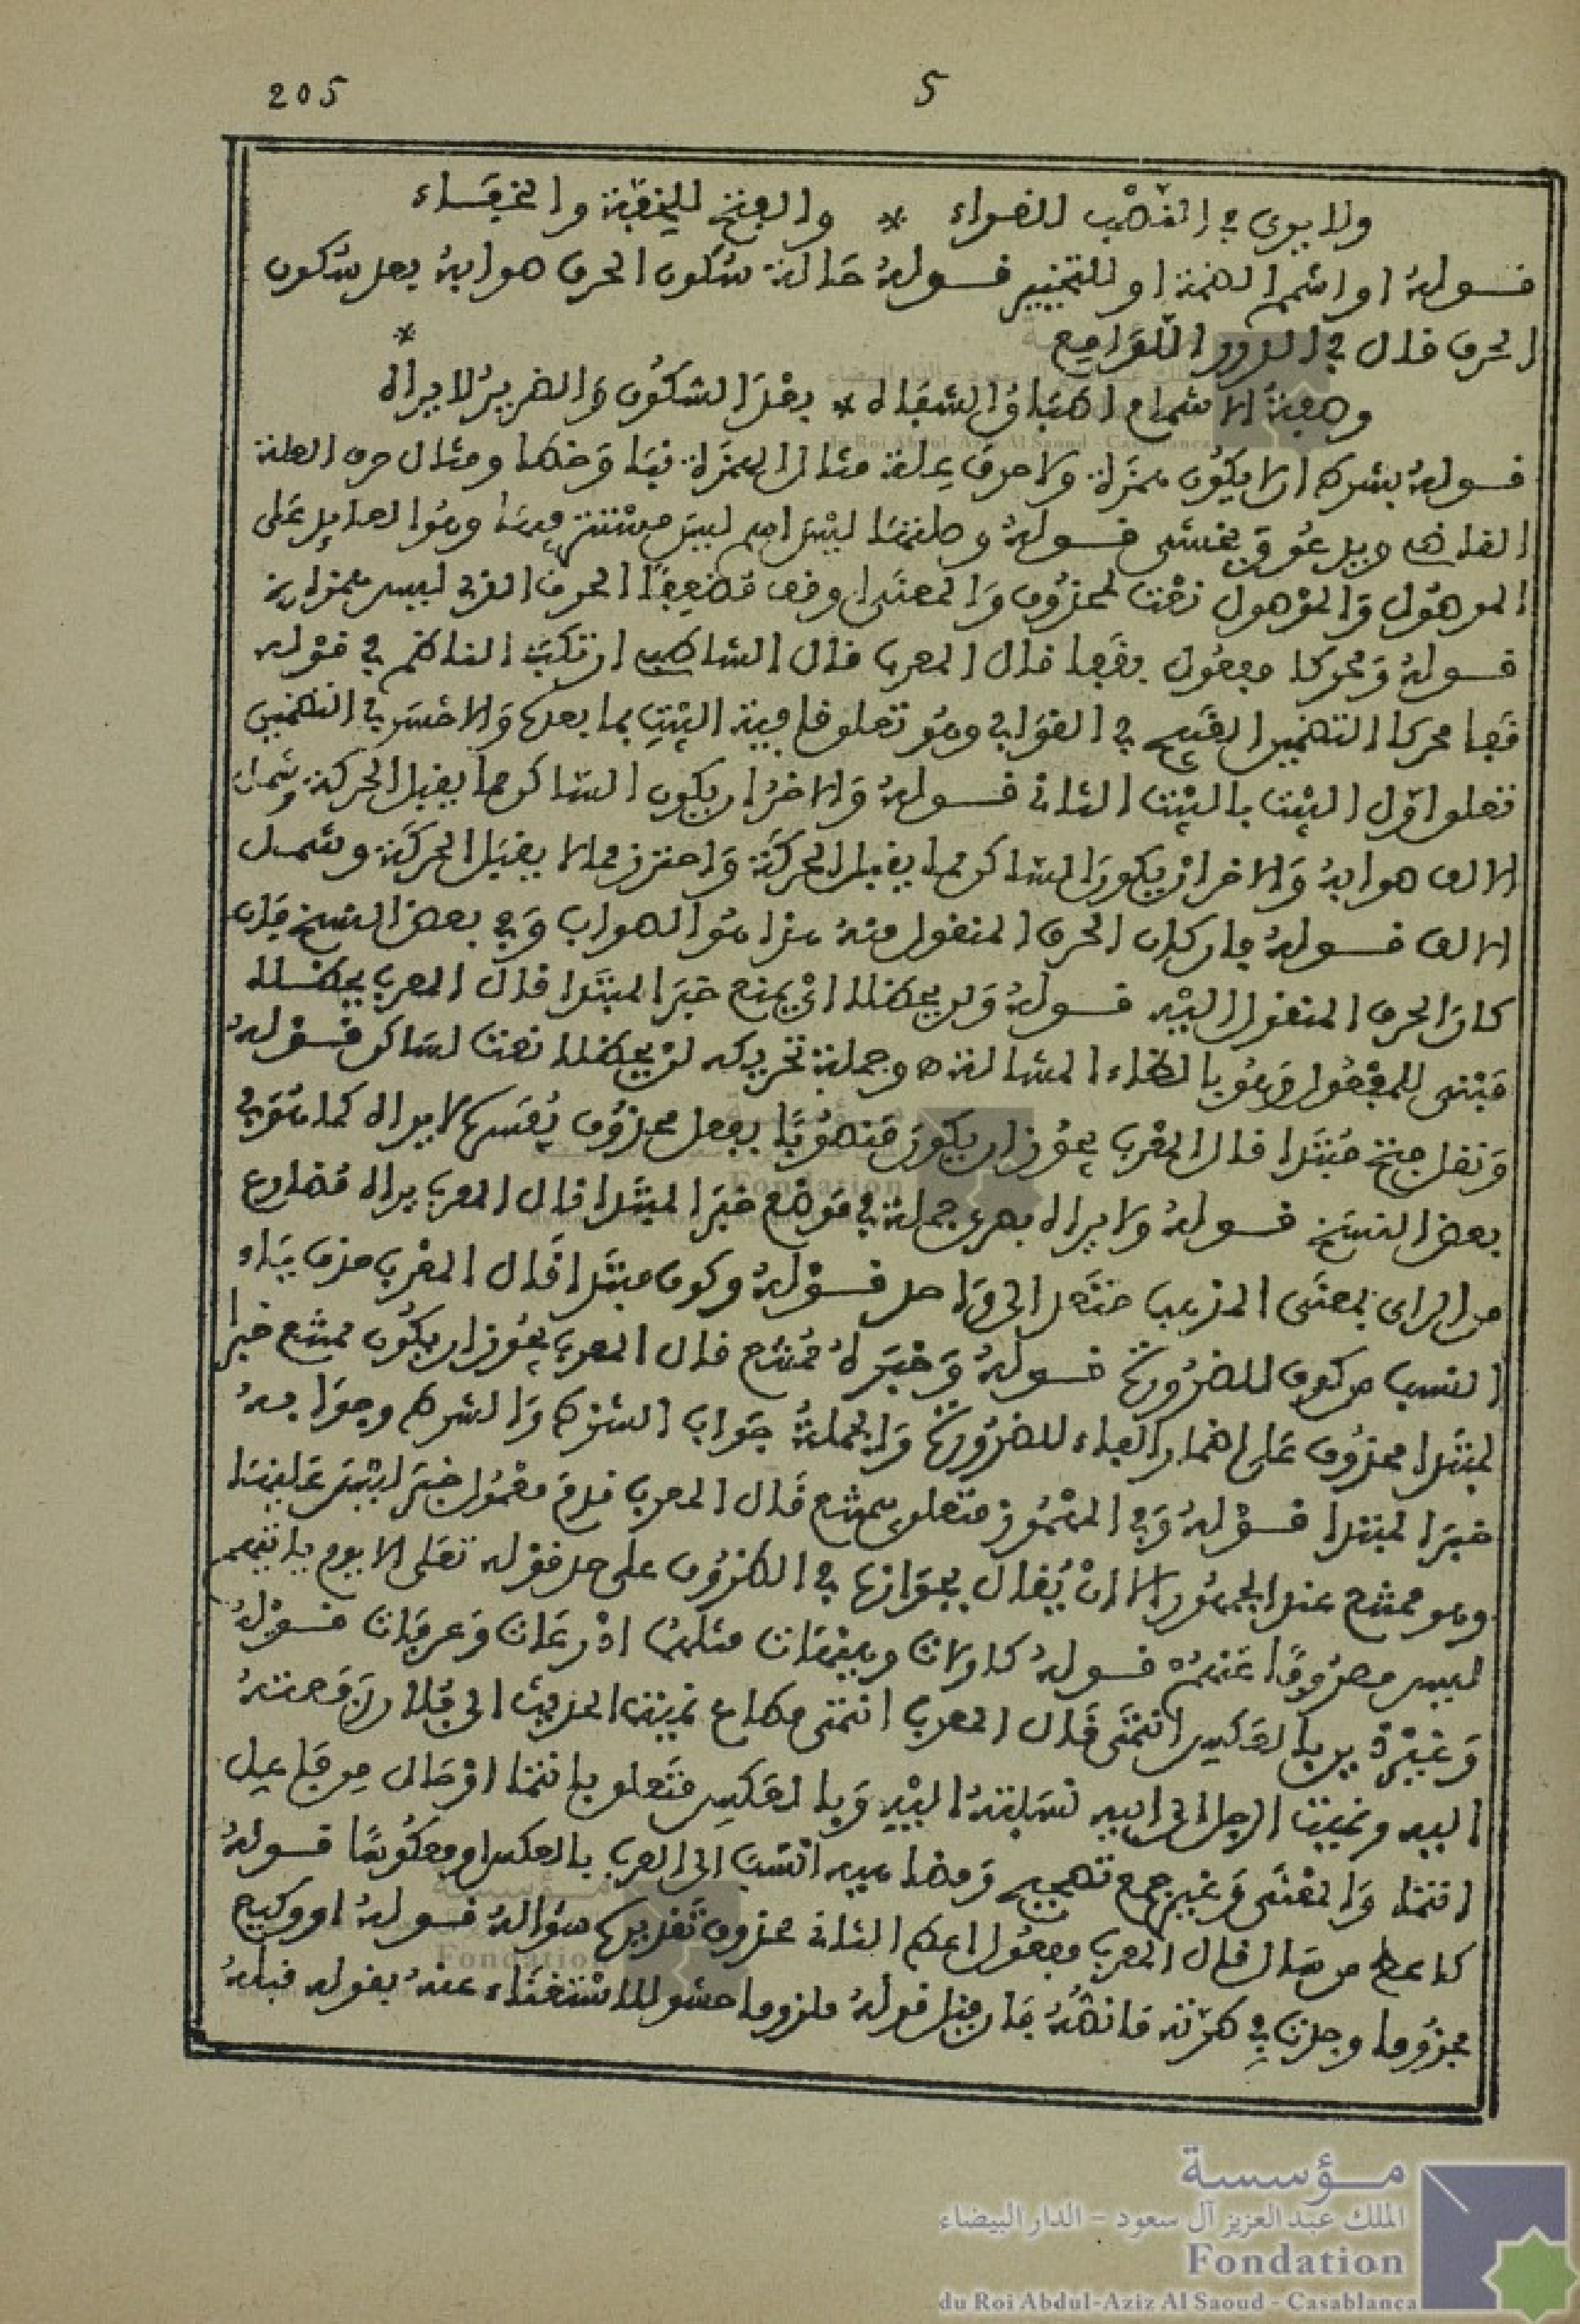 205
5
ولا يرى في النصب القراء * والفتح للخفة والخفاء
قوله او اشمم الضمة او للتخيير قوله حالة سكون الحرف صوابه بعد سكون
الحرف قال في الدرر اللوامع *
وصفة الاشمام اطباق الشفاه * بعد السكون والضرير لا يراه
قوله بشرط ان لا يكون همزة ولا حرف علة مثال الهمزة نبا وخطا ومثال حرف العلة
القاضي ويدعو ويخشى قوله وصلتها ليس اسم ليس مستتر فيها وهو العايد على
الموصول والموصول نعت لمحذوف والمعنى اوقف مضعفا الحرف الذي ليس همزا ا
قوله ومحركا مفعول بقفا قال المعرب قال الشاطبي ارتكب الناظم في قوله
قفا محركا التضمين القبيح في القوافي وهو تعلق قافية البيت بما بعدها والاحسن في التضمين
تعلق اول البيت بالبيت الثاني قوله والاخر ان يكون الساكن مما يقبل الحركة وشمل
الالف صوابه والاخر ان يكون الساكن مما يقبل الحركة واحترز مما لا يقبل الحركة وشمل
الالف قوله فان كان الحرف المنقول منه هذا هو الصواب وفي بعض النسخ فان
كان الحرف المنقول اليه قوله ولن يحظلا اي يمنع خبر المبتدا قال المعرب يحظلا
مبني للمفعول وهو بالظاء المشالة ه وجملة تحريكه لن يحظلا نعت لساكن قوله
ونقل فتح مبتدا قال المعرب يجوز ان يكون منصوبا بفعل محذوف يفسره لا يراه كما هو في
بعض النسخ قوله ولا يراه بصري جملة في موضع خبر المبتدا قال المعرب يراه مضارع
من الراي بمعنى المذهب متعد الى واحد قوله وكوف مبتدا قال المعرب حذف ياء
النسب من كوف للضرورة قوله وخبره ممتنع قال المعرب يجوز ان يكون ممتنع خبرا
لمبتدا محذوف على اضمار الفاء للضرورة والجملة جواب الشرط والشرط وجوابه
خبر المبتدا قوله وفي المهموز متعلق بممتنع قال المعرب قدم معمول خبر ليس عليها
وهو ممتنع عند الجمهور الا ان يقال بجوازها في الظروف على حد قوله تعلى الا يوم ياتيهم
ليس مصروفا عنهم قوله كاولات وهيهات مثلهما اذرعات وعرفات قوله
وغير ذين بالعكس انتمى قال المعرب انتمى مطاوع نميت الحديث الى فلان رفعته
اليه ونميت الرجل الى ابيه نسبته اليه وبالعكس متعلق بانتما او حال من فاعل
انتما والمعنى وغير جمع تصحيح ومضاهيه انتسب الى العرب بالعكس او معكوسا قوله
كاعط من سال قال المعرب مفعول اعط الثاني محذوف تقديره سؤاله قوله او وكيع
مجزوما وجدت في طرته ما نصه فان قبل قوله ملزوما حشو للاستغناء عنه بقوله قبله
مؤسسة
الملك عبد العزيز آل سعود - الدار البيضاء
Fondation
du Roi Abdul-Aziz Al Saoud - Casablanca